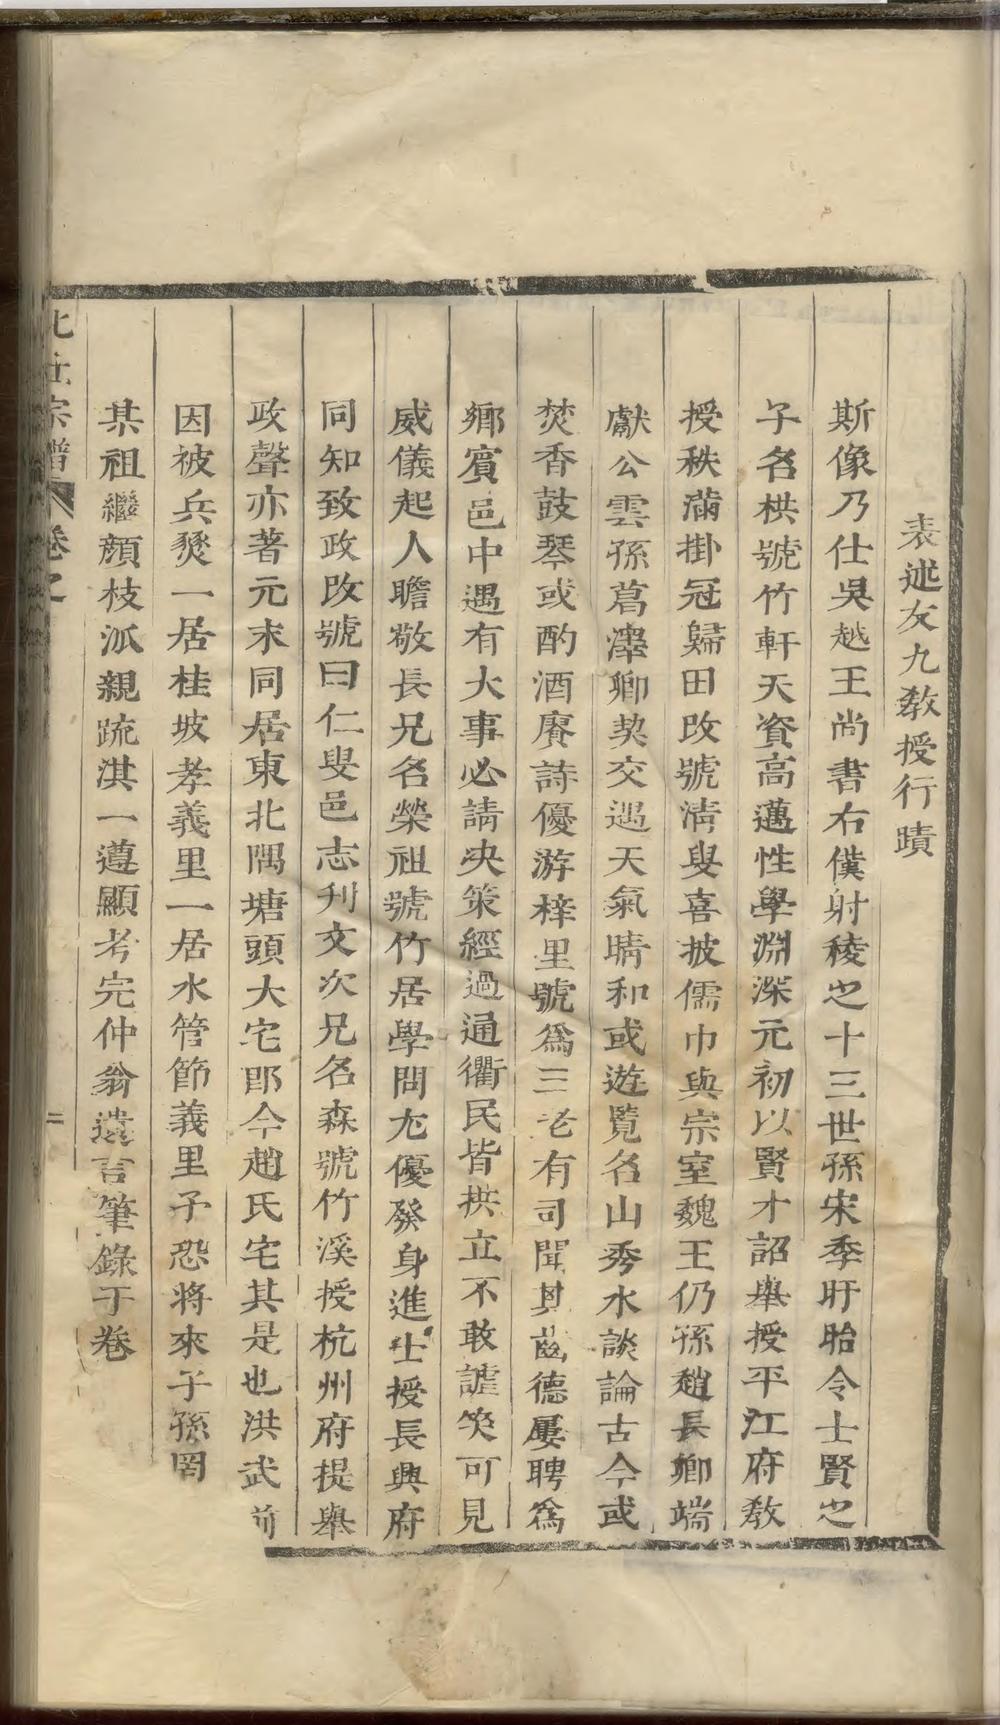 表述友九教授行蹟
斯像乃仕吳越王尚書右僕射稜之十三世孫宋季盱眙令士賢之
子名栱號竹軒天資高邁性學淵深元初以賢才詔舉授平江府教
授秩滿掛冠歸田改號清叟喜披儒巾與宗室魏王仍孫趙長卿端
獻公雲孫葛澤卿契交遇天氣晴和或遊覽名山秀水談論古今或
焚香鼓琴或酌酒賡詩優游梓里號爲三老有司聞其齒德屢聘爲
鄉賓邑中遇有大事必請决策經過通衢民皆拱立不敢謔笑可見
威儀起人瞻敬長兄名榮祖號竹居學問尤優發身進士授長興府
同知致政改號曰仁叟邑志刋文次兄名森號竹溪授杭州府提舉
政聲亦著元末同居東北隅塘頭大宅即今趙氏宅其是也洪武前
因被兵燹一居桂坡孝義里一居水管節義里予恐將來子孫罔
某祖繼顔枝派親疏淇一遵顯考完仲翁遺言筆錄于卷
宗譜 卷之 二